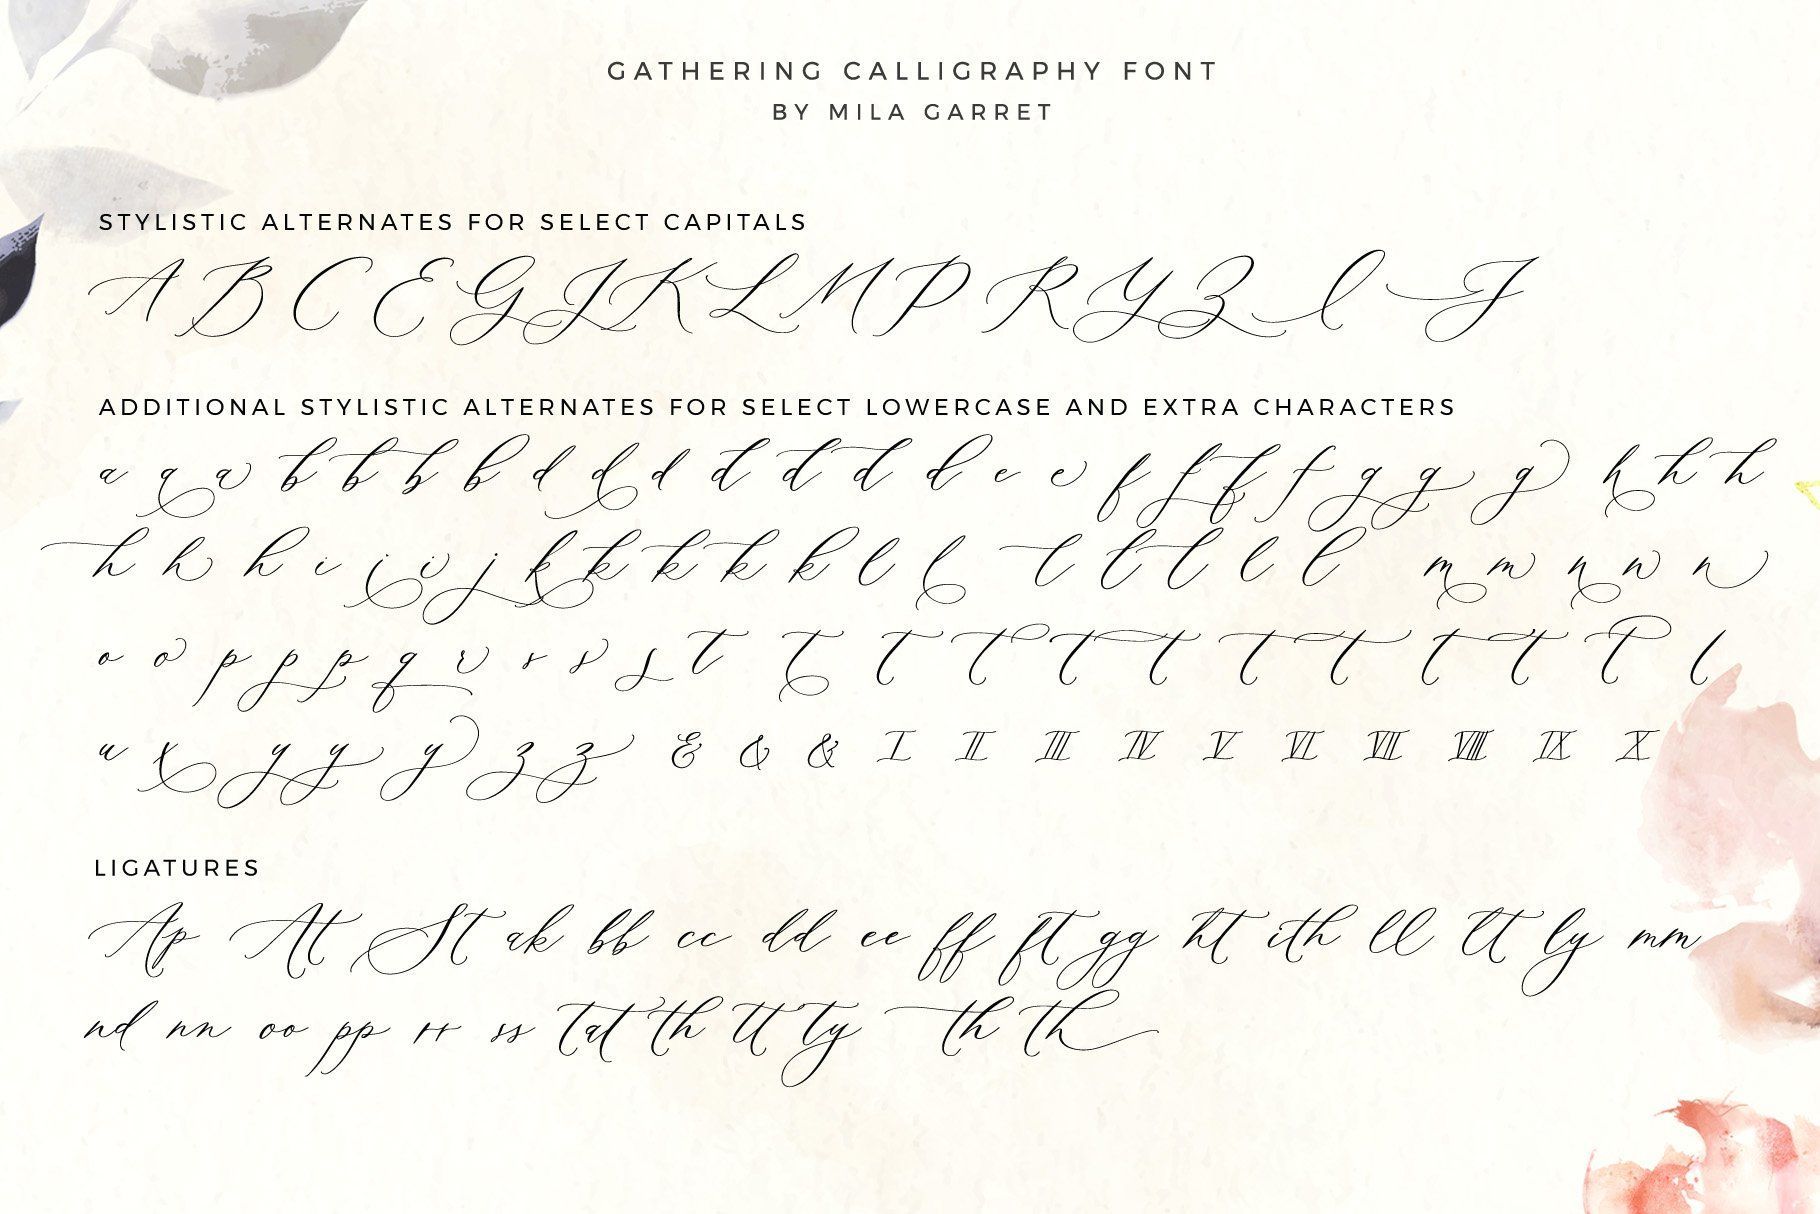 GATHERING CALLIGRAPHY FONT
BY MILA GARRET
STYLISTIC ALTERNATES FOR SELECT CAPITALS
A B C E G J K L M P R Y Z I J
ADDITIONAL STYLISTIC ALTERNATES FOR SELECT LOWERCASE AND EXTRA CHARACTERS
a a a b b b b d d d d d d d e e f f f f g g g h h h
h h h i i i j k k k k k l l l l l l l m m n n n
o o p p p q r s s s t t t t t t t t t t t t
u x y y y z z & & & I II III IV V VI VII VIII IX X
LIGATURES
Ap At St ak bb cc dd ee ff ft gg ht ith ll lt ly mm
nd nn oo pp rr ss tat th tt ty th th